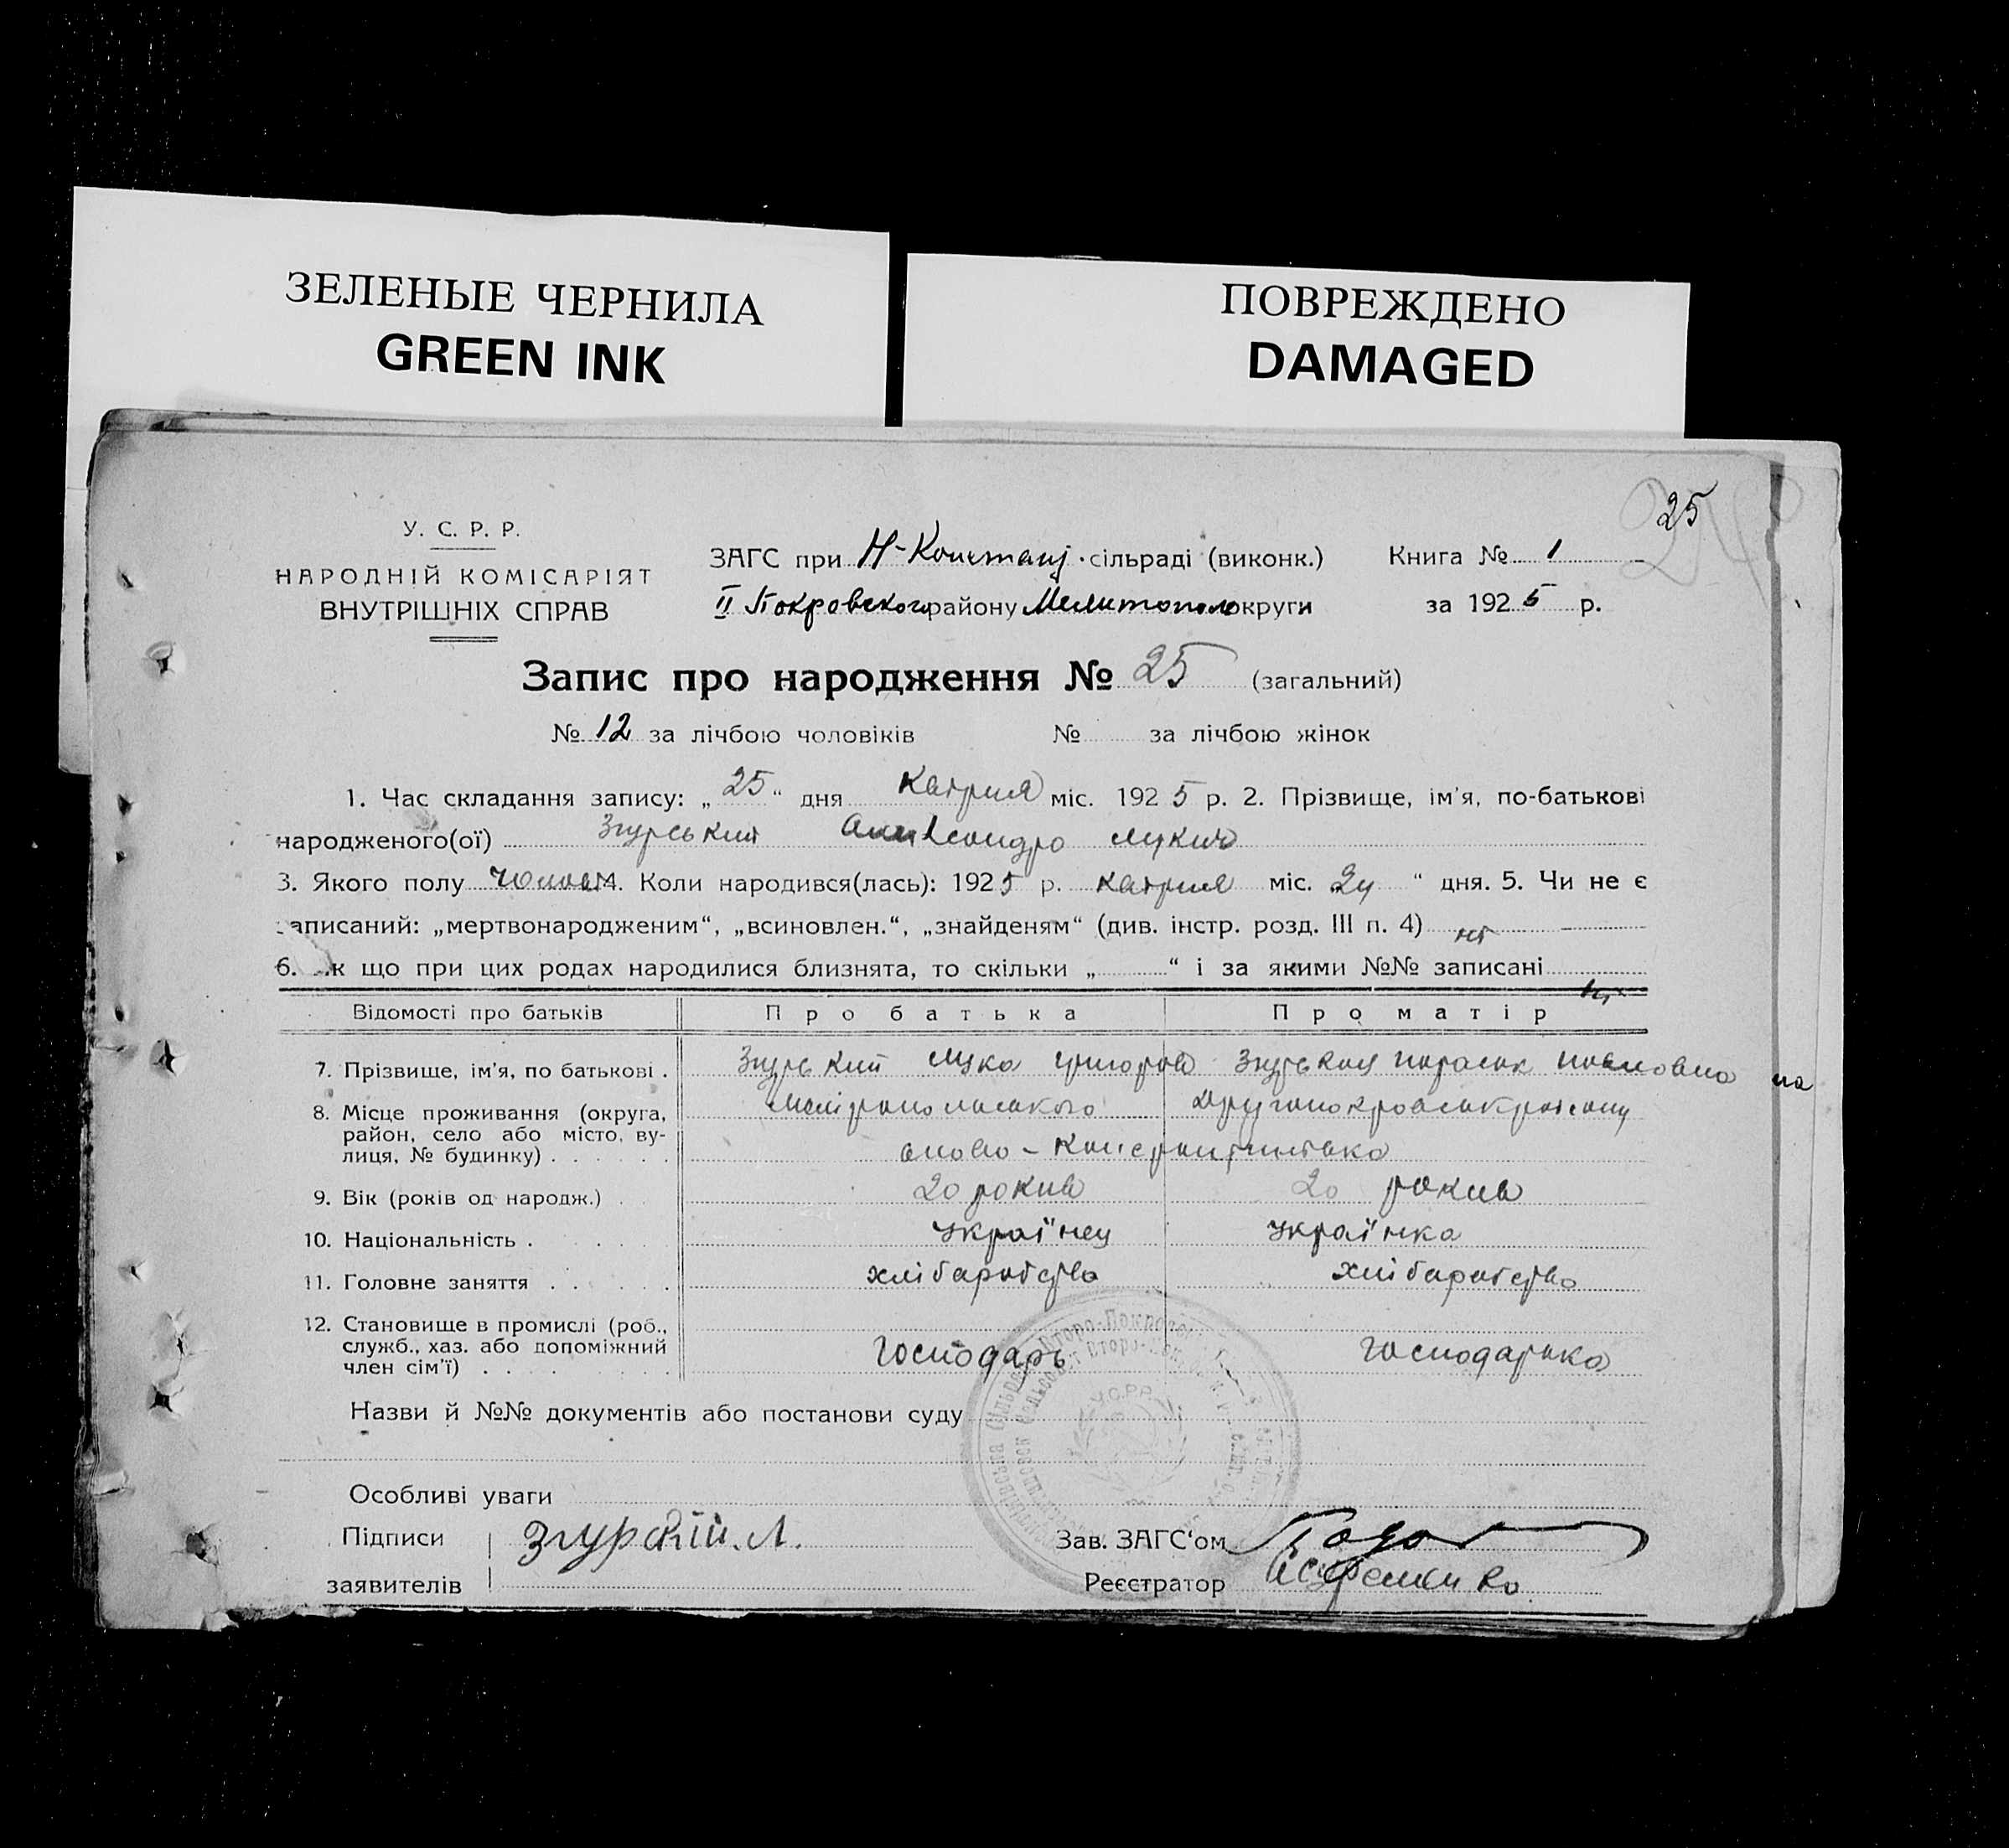 ЗЕЛЕНЫЕ ЧЕРНИЛА
GREEN INK
ПОВРЕЖДЕНО
DAMAGED
25
У. С. Р. Р.
НАРОДНІЙ КОМІСАРІЯТ
ВНУТРІШНІХ СПРАВ
ЗАГС при Н-Констант сільраді (виконк.) Книга № 1
II Покровского району Мелитопол округи за 1925 р.
Запис про народження № 25 (загальний)
№ 12 за лічбою чоловіків № за лічбою жінок
1. Час складання запису: „25“ дня Катрия міс. 1925 р. 2. Прізвище, ім'я, по-батькові
народженого(ої) Згурський Александро Лукич
3. Якого полу чолов 4. Коли народився(лась): 1925 р. Катрия міс. 24 “ дня. 5. Чи не є
записаний: „мертвонародженим“, „всиновлен.“, „знайденям“ (див. інстр. розд. III п. 4) ні
6. Як що при цих родах народилися близнята, то скільки „ “ і за якими №№ записані ні
Відомості про батьків Про батька Про матір
7. Прізвище, ім'я, по батькові . Згурський Лука Григоров Згурская Параск Павловна
8. Місце проживання (округа, район, село або місто, вулиця, № будинку) Мелітопольского Другопокровськ району
Ново-Константиновка
9. Вік (років од народж.) . 20 рокив 20 рокив
10. Національність . Украї'нец Украї'нка
11. Головне заняття . хліборобство хліборобство
12. Становище в промислі (роб., служб., хаз. або допоміжний член сім'ї) . Господарь Господарька
Назви й №№ документів або постанови суду
У.С.Р.Р.
Особливі уваги
Підписи Згурский. Л. Зав. ЗАГС'ом
заявителів Реєстратор